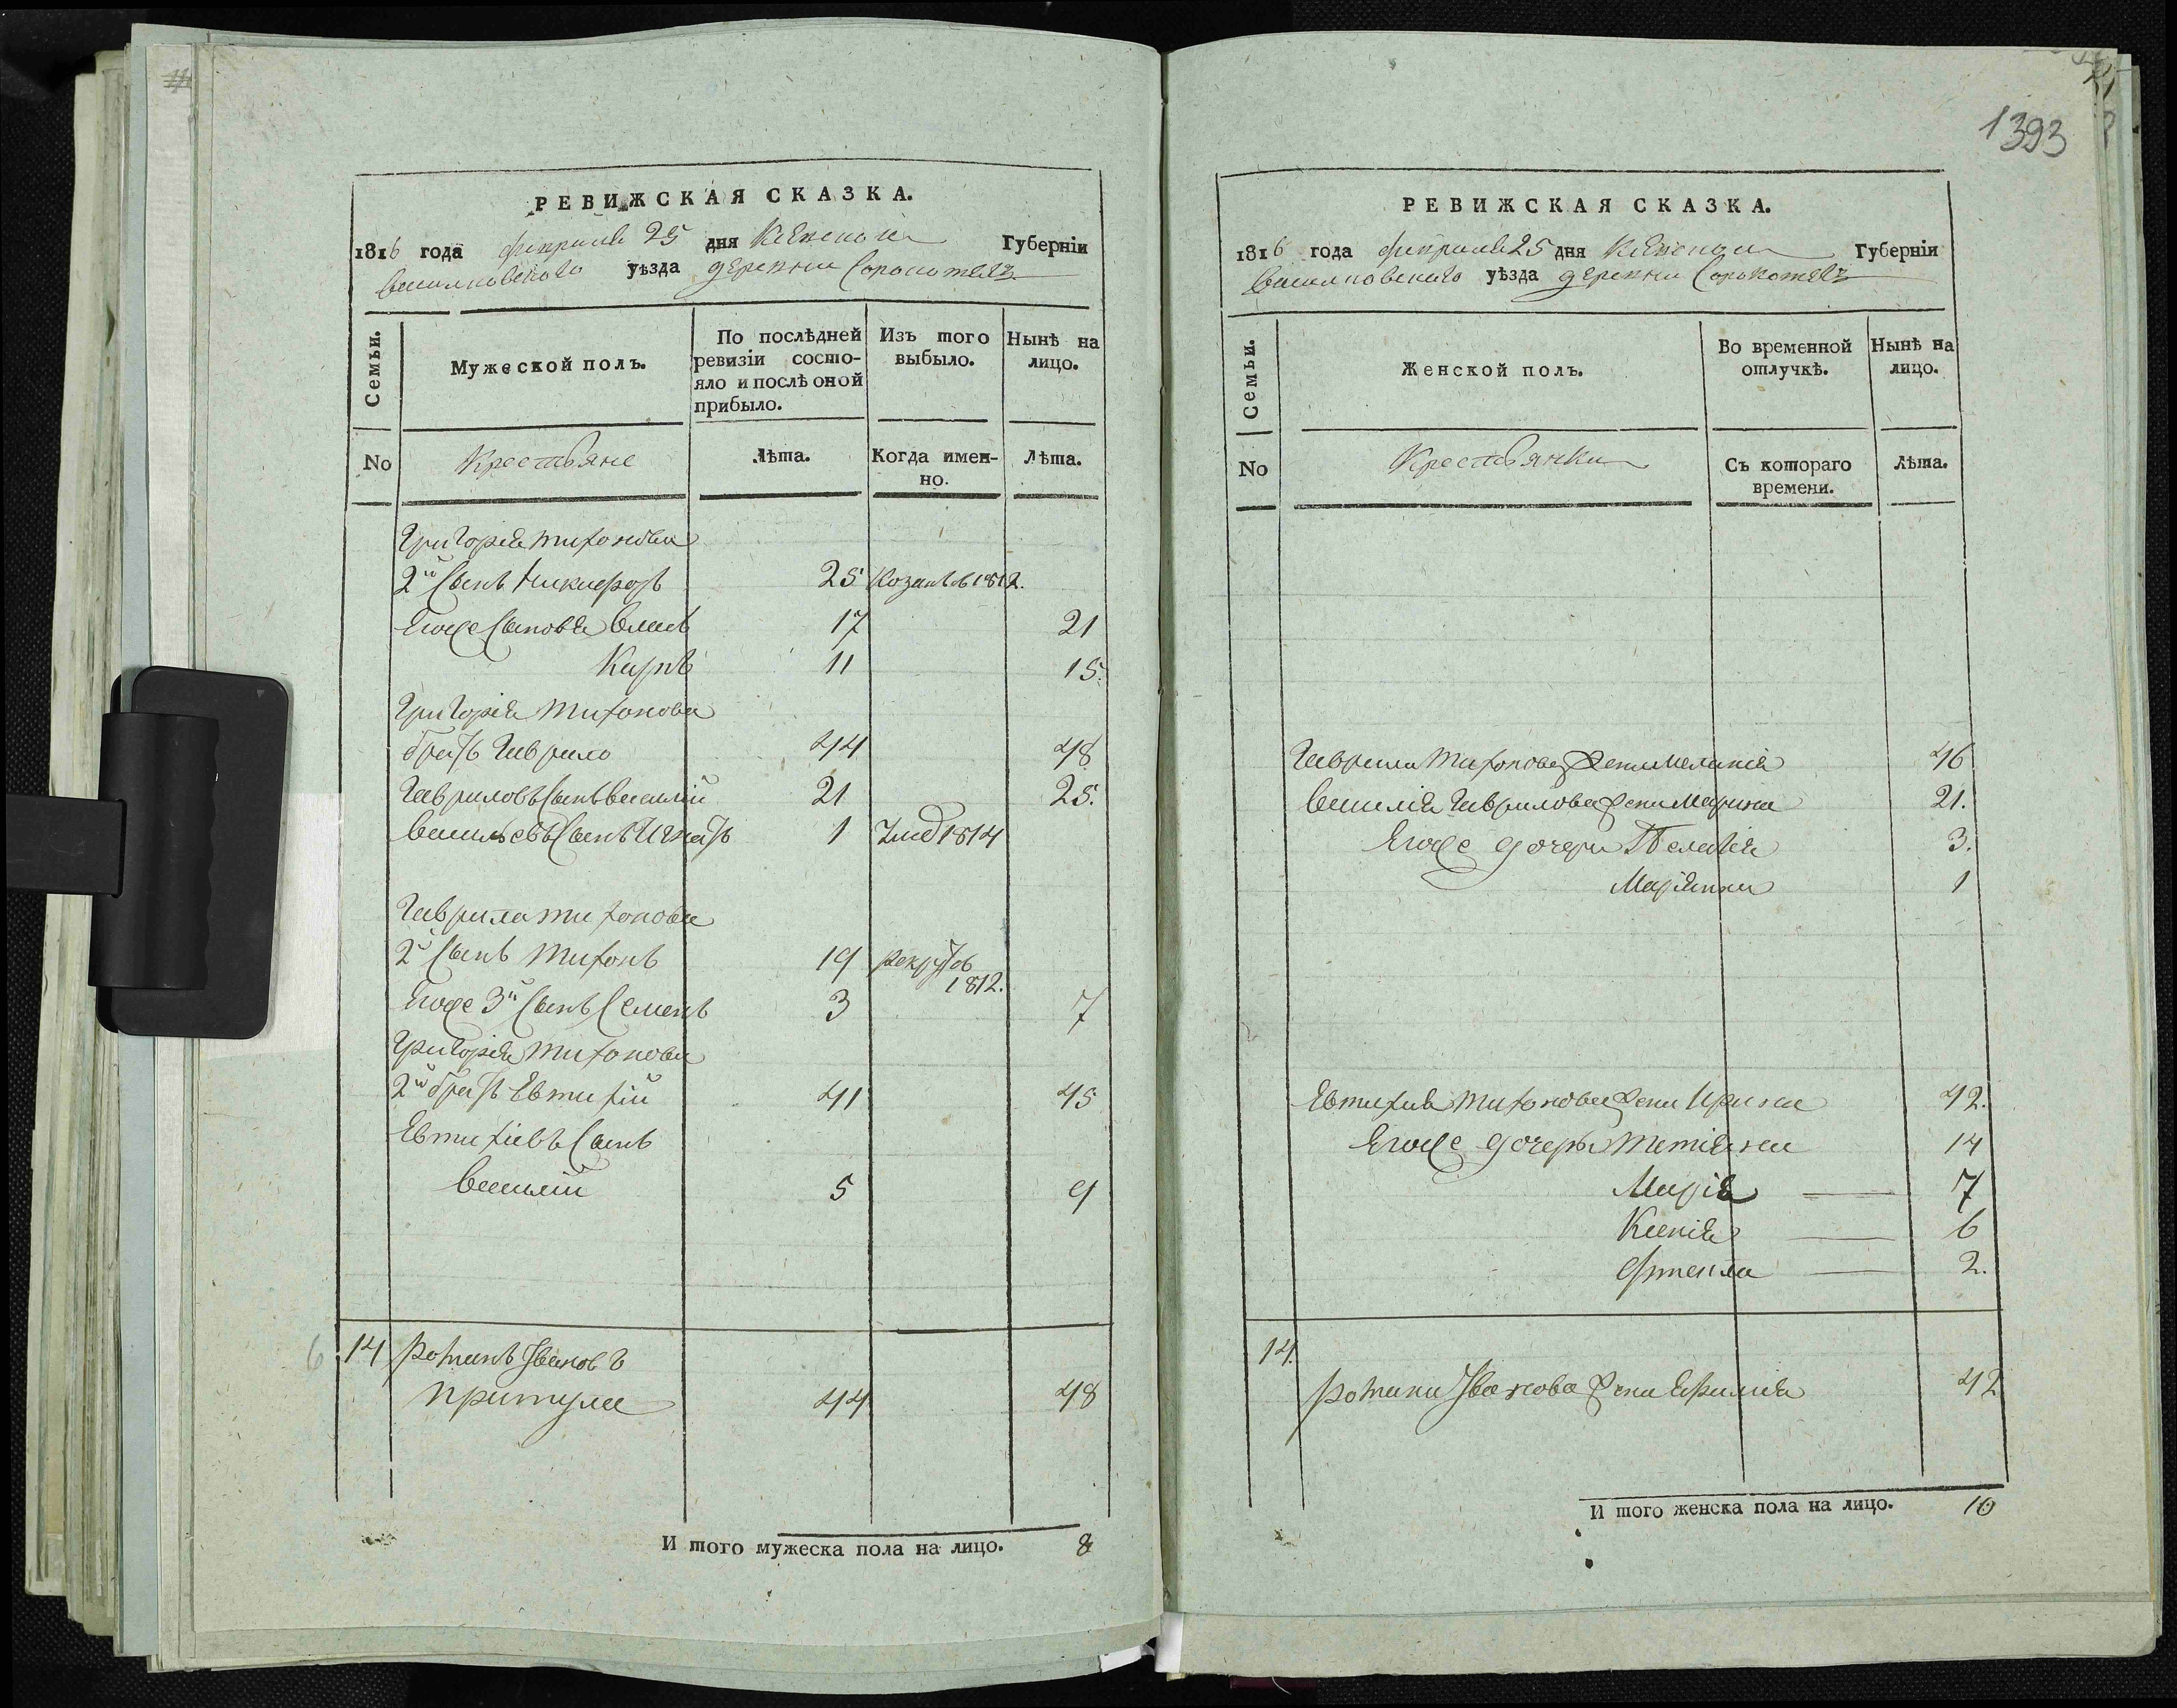 1393
РЕВИЖСКАЯ СКАЗКА.
1816 года февраля 25 дня Киевской Губерніи
Васильковского уѣзда деревни Сорокотягъ
Семьи.
Мужеской полъ.
По послѣдней ревизіи состо-
яло и послѣ оной прибыло.
Изъ того выбыло.
Нынѣ на лицо.
No
Крестьяне
Лѣта.
Когда имен-
но.
Лѣта.
Григорія Тихонова
2й Сынъ Никифоръ 25 Козакъ в 1812.
Егоже Сыновья Власъ 17 21
Карпъ 11 15.
Григорія Тихонова
братъ Гаврило 44 48
Гавриловъ Сынъ василій 21 25.
васильевъ Сынъ Игнатъ 1 1814
Гаврила тихонова
2й Сынъ Тихонъ 19 рекрутъ в
1812.
Егоже 3й Сынъ Семенъ 3 7
Григорія Тихонова
2й братъ Евтихій 41 45
Евтихіевъ Сынъ
василій 5 9
6 14 романъ Ивановъ
притула 44 48
И того мужеска пола на лицо. 8
РЕВИЖСКАЯ СКАЗКА.
1816 года февраля 25 дня Киевской Губерніи
Васильковского уѣзда деревни Сорокотягъ
Семьи.
Женской полъ.
Во временной отлучкѣ.
Нынѣ на лицо.
No
Крестьянки
Съ котораго времени.
Лѣта.
Гаврила Тихонова жена Меланія 46
василія Гаврилова жена Марина 21.
Егоже дочери Пелагія 3.
Маріянна 1
Евтихія Тихонова жена Ирина 42.
Егоже дочеры Татіяна 14
Марія 7
Ксенія 6
2.
14.
романа Иванова жена 42
И того женска пола на лицо. 10